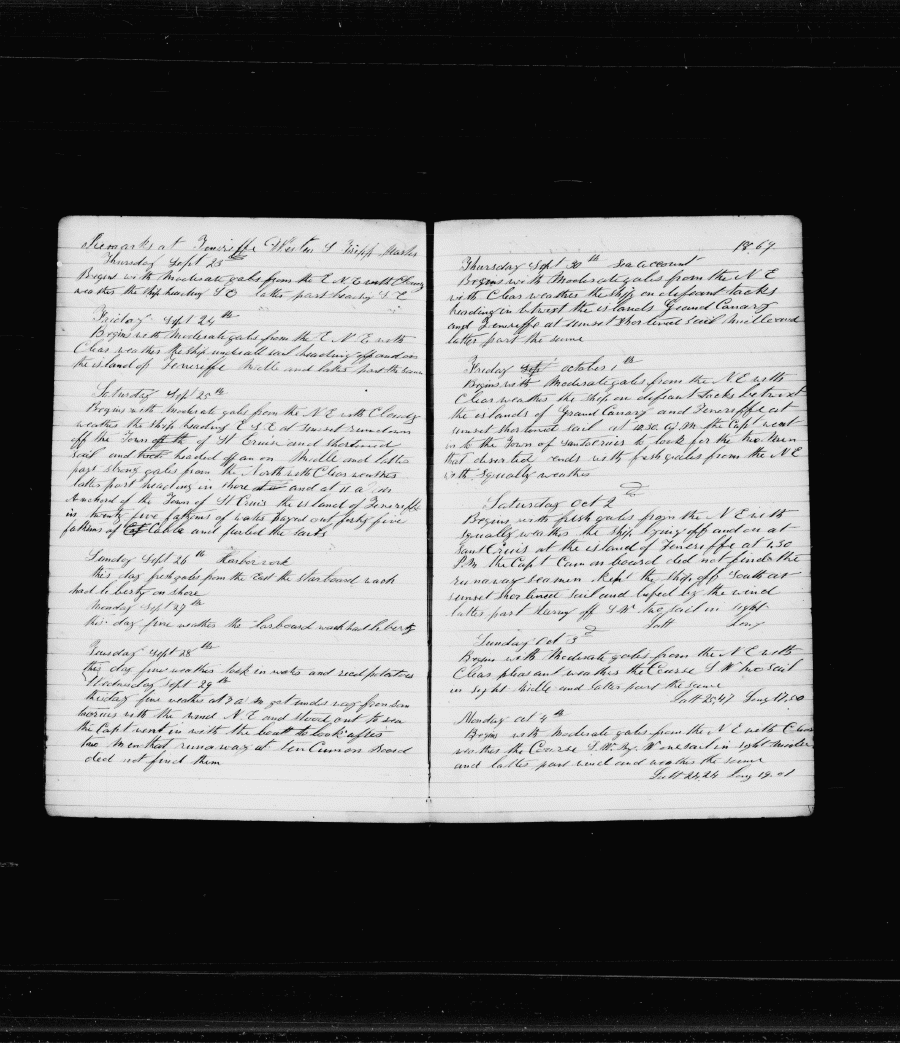 Remarks at Teneriffe Westen S Tripp Master
Thursday Sept 23
Begins with Moderate gales from the E N E with Cloudy
weather the ship heading S O latter part heading S E
Friday Sept 24th
Begins with Moderate gales from the E N E with
Clear weather the ship under all sail heading off and on
the island of Teneriffe Midle and latter part the same
Saturday Sept 25th
Begins with Moderate gales from the N E with Cloudy
weather the ship heading E S E at sunset run down
off the Town off the of St Cruis and shortened
sail and headed off an on Middle and latter
part strong gales from the North with Clear weather
latter part heading in shore and at 11 a
Anchord of the Town of St Cruis the island of Teneriffe
in twenty five fathoms of water payed out forty five
fathoms of Cable and furled the sails
Sunday Sept 26th Harbor work
this day fresh gales from the East the starboard wach
had liberty on shore
Monday Sept 27th
this day fine weather the Larboard wach had liberty
Tuesday Sept 28th
this day fine weather took in water and recd potatoes
Wednesday Sept 29th
this day fine weather at 7 a m got under way from
with the wind N E and stood out to sea
the Capt went in with the boat to look after
two Men that runaway at
did not find them
18.69.
Thursday Sept 30th Sea account
Begins with Moderate gales from the N E
with Clear weather the ship on defrant tacks
heading in betwixt the islands Grand Canary
and Teneriffe at sunset shortened sail Midle and
latter part the same
Friday Sept october 1th
Begins with Moderate gales from the N E with
Clear weather the ship on defrant tacks betwixt
the islands of Grand Canary and Teneriffe at
sunset shortened sail at 10.30 a.m. the Capt went
in to the Town of Santacruis to look for the two Men
that deserted ends with fresh gales from the N E
with Squally weather
Saturday Oct 2
Begins with fresh gales from the N E with
squally weather the ship lying off and on at
Sant Cruis at the island of Teneriffe at 1.30
P.M. the Capt Cam on board did not find the
runaway seamen Kept the ship off South at
sunset shortened sail and luffed by the wind
latter part Keeping off S W two sail in sight
Latt Long
Sunday Oct 3
Begins with Moderate gales from the N E with
Clear pleasant weather the Course S W two sail
in sight Midle and latter part the same
Latt 25,47 Long 17.00
Monday oct 4th
Begins with Moderate gales from the N E with Clear
weather the Course S. W. by. W one sail in sight
and latter part wind and weather the same
Latt 24,24 Long 19.01